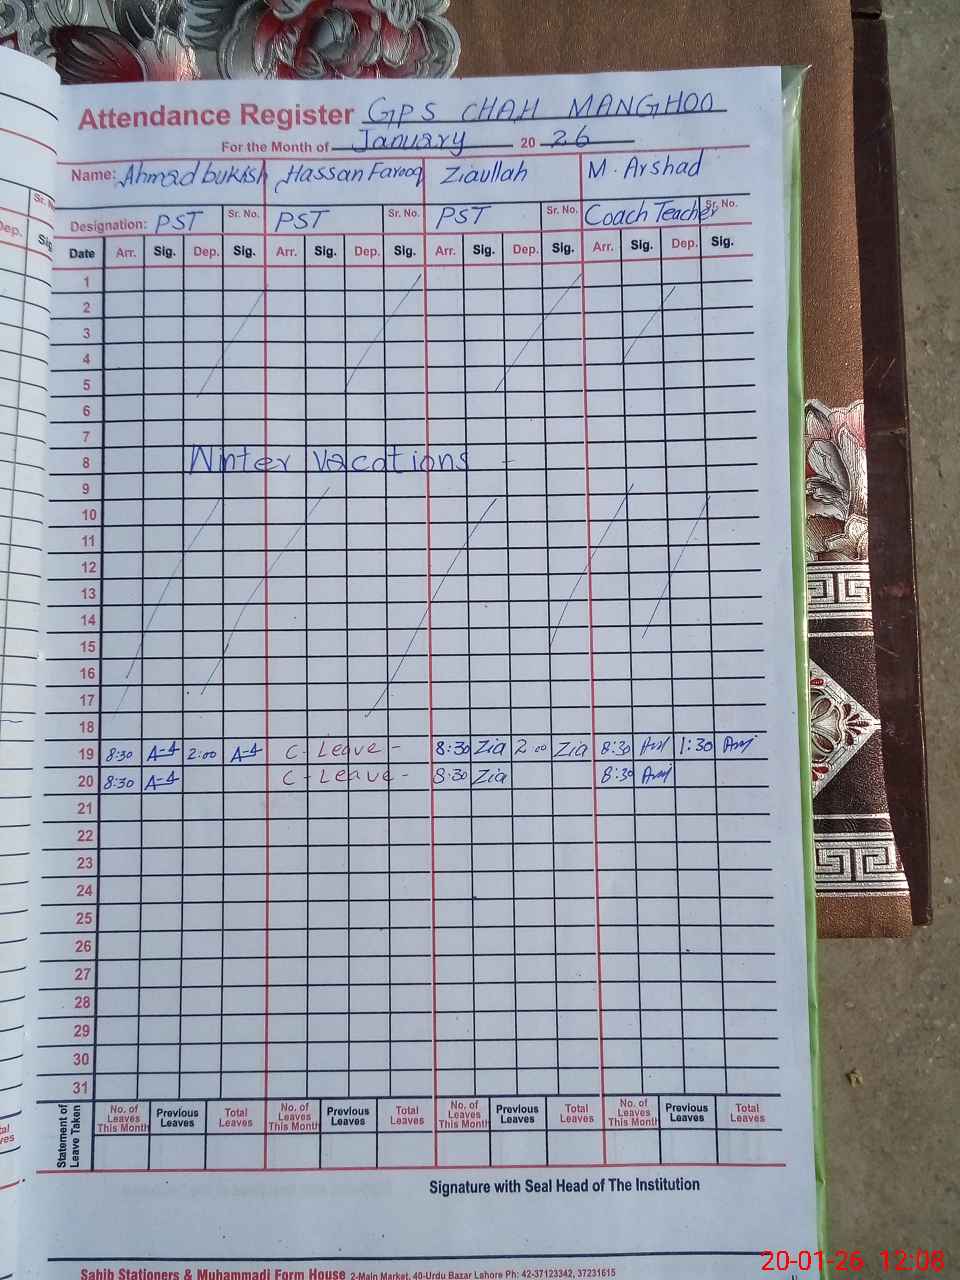 Attendance Register GPS CHAH MANGHOO
For the Month of January 20 26
Name: Ahmad bukhsh Hassan Farooq Ziaullah M. Arshad
Designation: PST Sr. No. PST Sr. No. PST Sr. No. Coach Teacher Sr. No.
Date Arr. Sig. Dep. Sig. Arr. Sig. Dep. Sig. Arr. Sig. Dep. Sig. Arr. Sig. Dep. Sig.
1
2
3
4
5
6
7
8 Winter vacations -
9
10
11
12
13
14
15
16
17
18
19 8:30 2:00 C - Leave - 8:30 Zia 2:00 Zia 8:30 1:30
20 8:30 C - Leave - 8:30 Zia 8:30
21
22
23
24
25
26
27
28
29
30
31
Statement of Leave Taken
No. of Leaves This Month Previous Leaves Total Leaves No. of Leaves This Month Previous Leaves Total Leaves No. of Leaves This Month Previous Leaves Total Leaves No. of Leaves This Month Previous Leaves Total Leaves
Signature with Seal Head of The Institution
Sahib Stationers & Muhammadi Form House 2-Main Market, 40-Urdu Bazar Lahore Ph: 42-37123342, 37231615
20-01-26 12:08